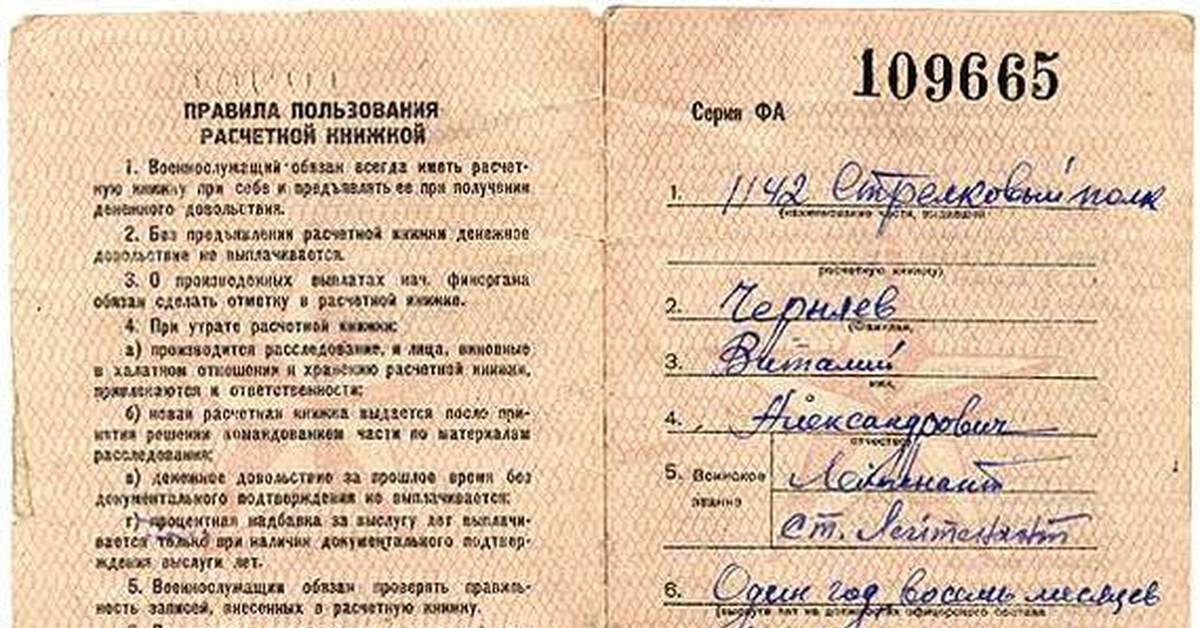 ПРАВИЛА ПОЛЬЗОВАНИЯ
РАСЧЕТНОЙ КНИЖКОЙ
1. Военнослужащий обязан всегда иметь расчет-
ную книжку при себе и предъявлять ее при получении
денежного довольствия.
2. Без предъявления расчетной книжки денежное
довольствие не выплачивается.
3. О произведенных выплатах нач. финоргана
обязан сделать отметку в расчетной книжке.
4. При утрате расчетной книжки:
а) производится расследование, и лица, виновные
в халатном отношении к хранению расчетной книжки,
привлекаются к ответственности;
б) новая расчетная книжка выдается после при-
нятия решения командованием части по материалам
расследования;
в) денежное довольствие за прошлое время без
документального подтверждения не выплачивается;
г) процентная надбавка за выслугу лет выплачи-
вается только при наличии документального подтвер-
ждения выслуги лет.
5. Военнослужащий обязан проверять правиль-
ность записей, внесенных в расчетную книжку.
109665
Серия ФА
1. 1142 Стрелковый полк
(наименование части, выдавшей
расчетную книжку)
2. Черняев
(фамилия,
3. Виталий
имя,
4. Александрович
отчество)
5. Воинское звание
Лейтенант
ст. Лейтенант
6. Один год восемь месяцев
(выслуга лет на должностях офицерского состава